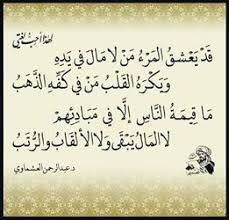 لهذا أحب لغتي
قَدْ يَعْشَقُ المَرْءُ مَنْ لَا مَالَ فِي يَدِهِ
وَيَكْرَهُ القَلْبُ مَنْ فِي كَفِّهِ الذَّهَبُ
مَا قِيمَةُ النَّاسِ إِلَّا فِي مَبَادِئِهِمْ
لَا المَالُ يَبْقَى وَلَا الأَلْقَابُ وَالرُّتَبُ
د.عبدالرحمن العشماوي